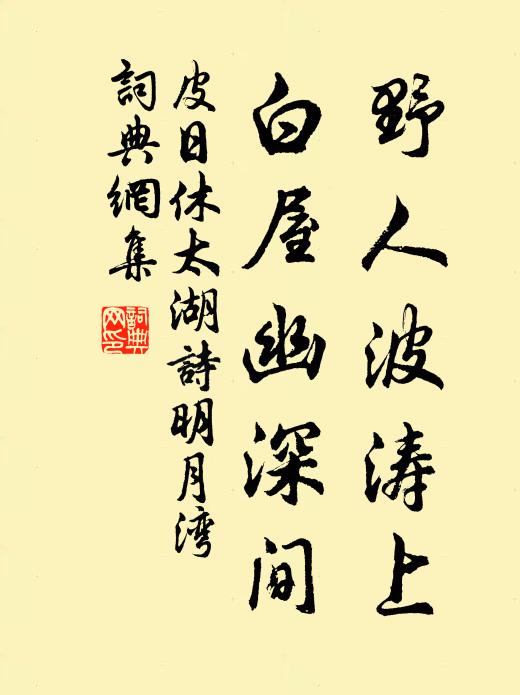 野人波涛上
白屋幽深间
皮日休太湖詩明月湾
詞典網集
詞典网印